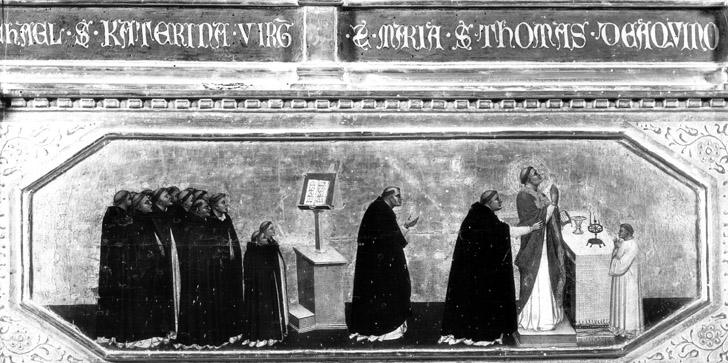 HAEL · S · KATERINA · VIRG̅ · S · MARIA · S · THOMAS · DEAQVINO